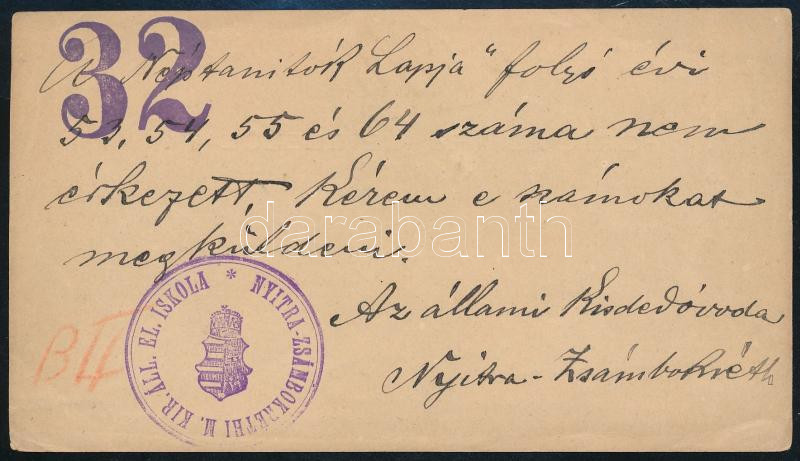 32
A „Néptanitók Lapja“ folyó évi
53, 54, 55 és 64 száma nem
érkezett, Kérem e számokat
megküldeni.
darabanth
Az állami Kisdedóvoda
Nyitra-Zsámbokréth
NYITRA-ZSÁMBOKRÉTHI M. KIR. ÁLL. EL. ISKOLA *
B II